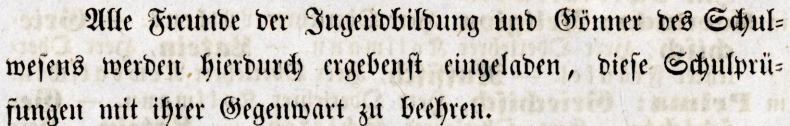 Alle Freunde der Jugendbildung und Gönner des Schul-
wesens werden hierdurch ergebenst eingeladen, diese Schulprü-
fungen mit ihrer Gegenwart zu beehren.